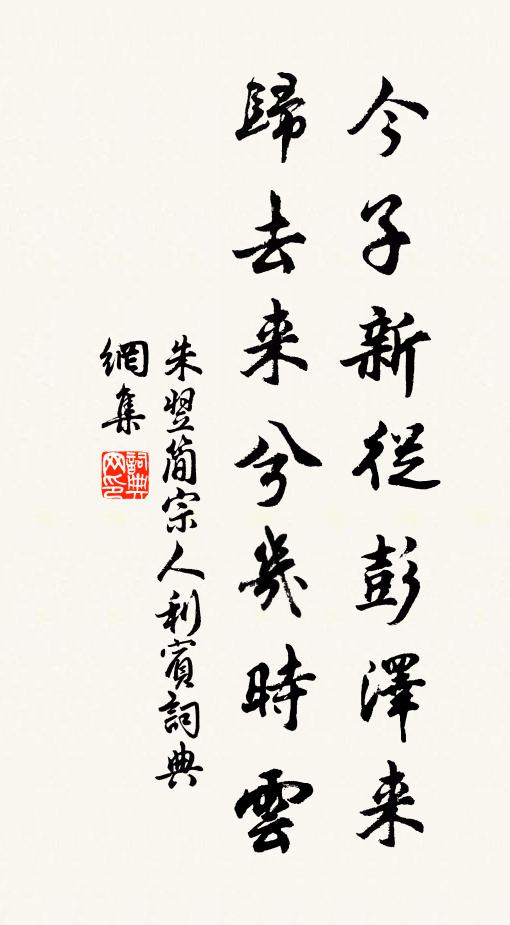 今子新從彭澤来
歸去来兮幾時雲
朱翌簡宗人利賓詞典
網集
詞典網印